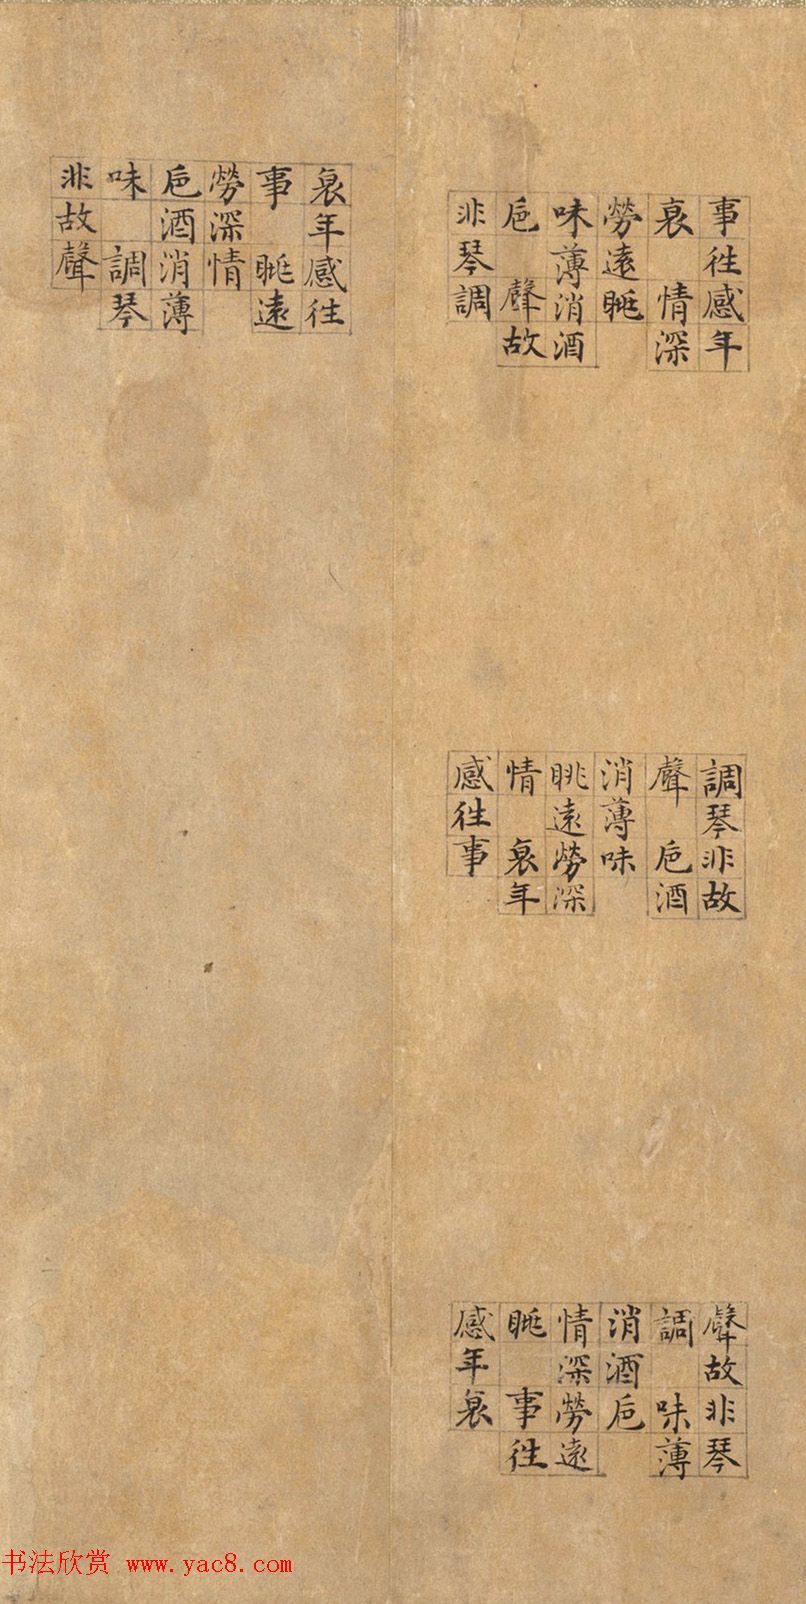 事徃感年
衰 情深
勞遠眺
味薄消酒
巵 聲故
非琴調
調琴非故
聲 巵酒
消薄味
眺遠勞深
情 衰年
感徃事
聲故非琴
調 味薄
消酒巵
情深勞遠
眺 事徃
感年衰
衰年感徃
事 眺遠
勞深情
巵酒消薄
味 調琴
非故聲
书法欣赏 www.yac8.com